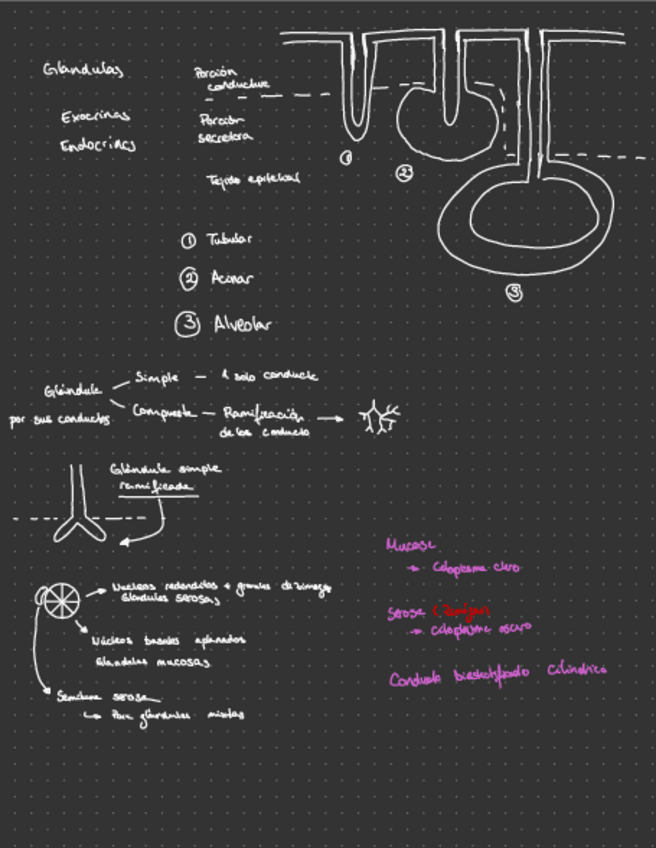 Glandulas
Exocrinas
Endocrinas
Porción
conductora
Porción
secretora
Tejido epitelial
①
②
③
① Tubular
② Acinar
③ Alveolar
Glándula
por sus conductos
Simple — 1 solo conducto
Compuesta — Ramificación
de los conducto
Glándula simple
ramificada
Nucleos redonditos + granulos de zimogeno
Glandulas serosas
Núcleos basales aplanados
Glandulas mucosas
Semiluna serosa
Para glándulas mixtas
Mucosa
Citoplasma claro
Serosa (Zimógeno)
Citoplasma oscuro
Conducto biestratificado Cilíndrico